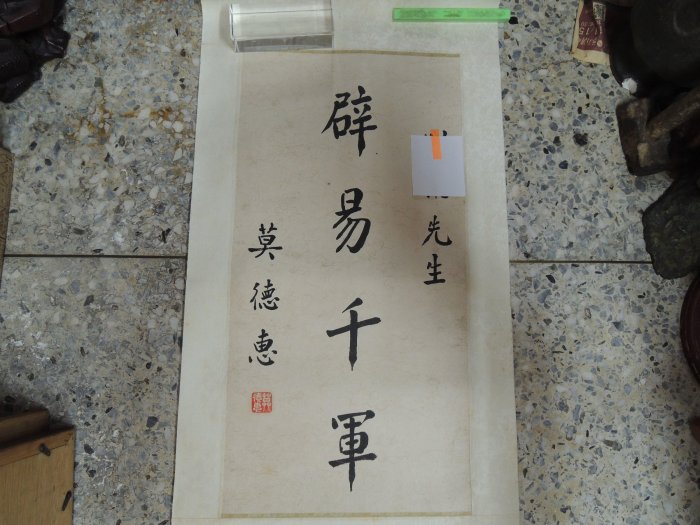 先生
辟易千軍
莫德惠